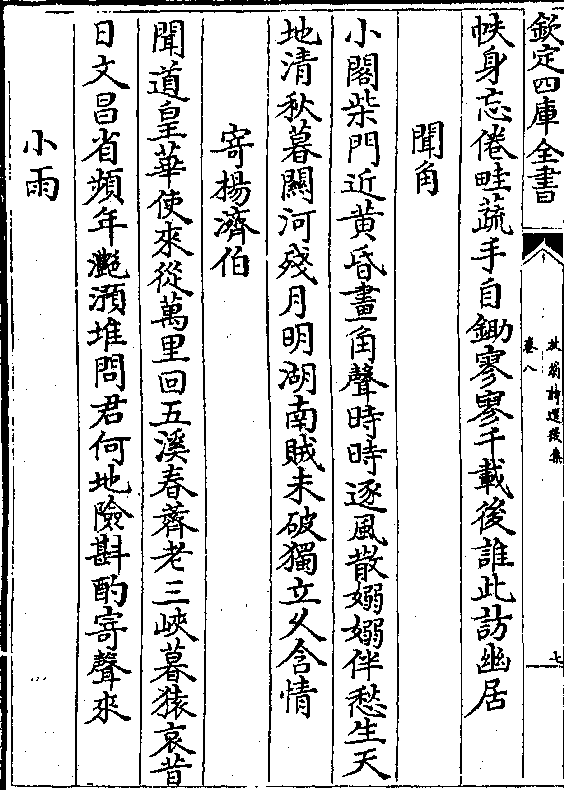 欽定四庫全書
卷八
七
帙身忘倦畦蔬手自鋤寥寥千載後誰此訪幽居
聞角
小閣柴門近黃昏畫角聲時時逐風散嫋嫋伴愁生天
地清秋暮關河殘月明湖南賊未破獨立久含情
寄揚濟伯
聞道皇華使來從萬里回五溪春薺老三峽暮猿哀昔
日文昌省頻年灔澦堆問君何地險斟酌寄聲來
小雨